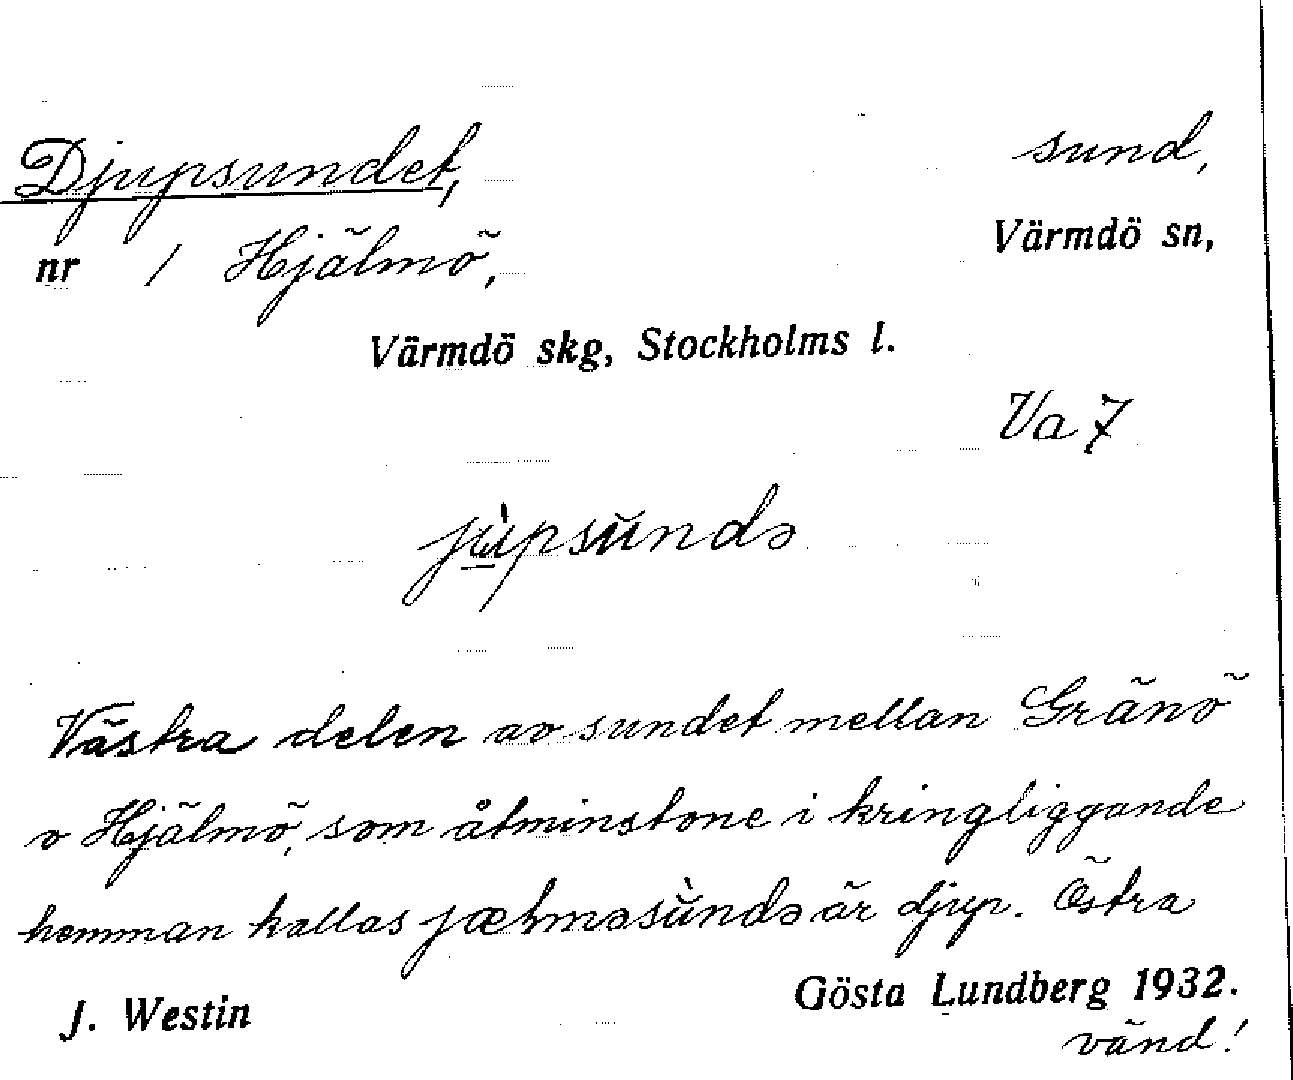 Djupsundet, sund,
nr 1 Hjälmö, Värmdö sn,
Värmdö skg, Stockholms l.
Va 7
Västra delen av sundet mellan Gränö
o Hjälmö, som åtminstone i kringliggande
hemman kallas är djup. Östra
J. Westin Gösta Lundberg 1932.
vänd!